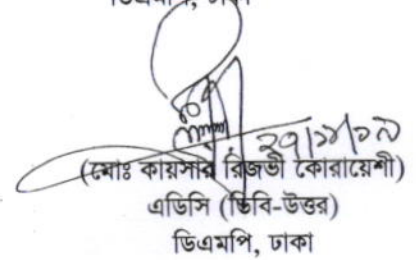 ডিএমপি, ঢাকা
(মোঃ কায়সার রিজভী কোরায়েশী)
এডিসি (ডিবি-উত্তর)
ডিএমপি, ঢাকা